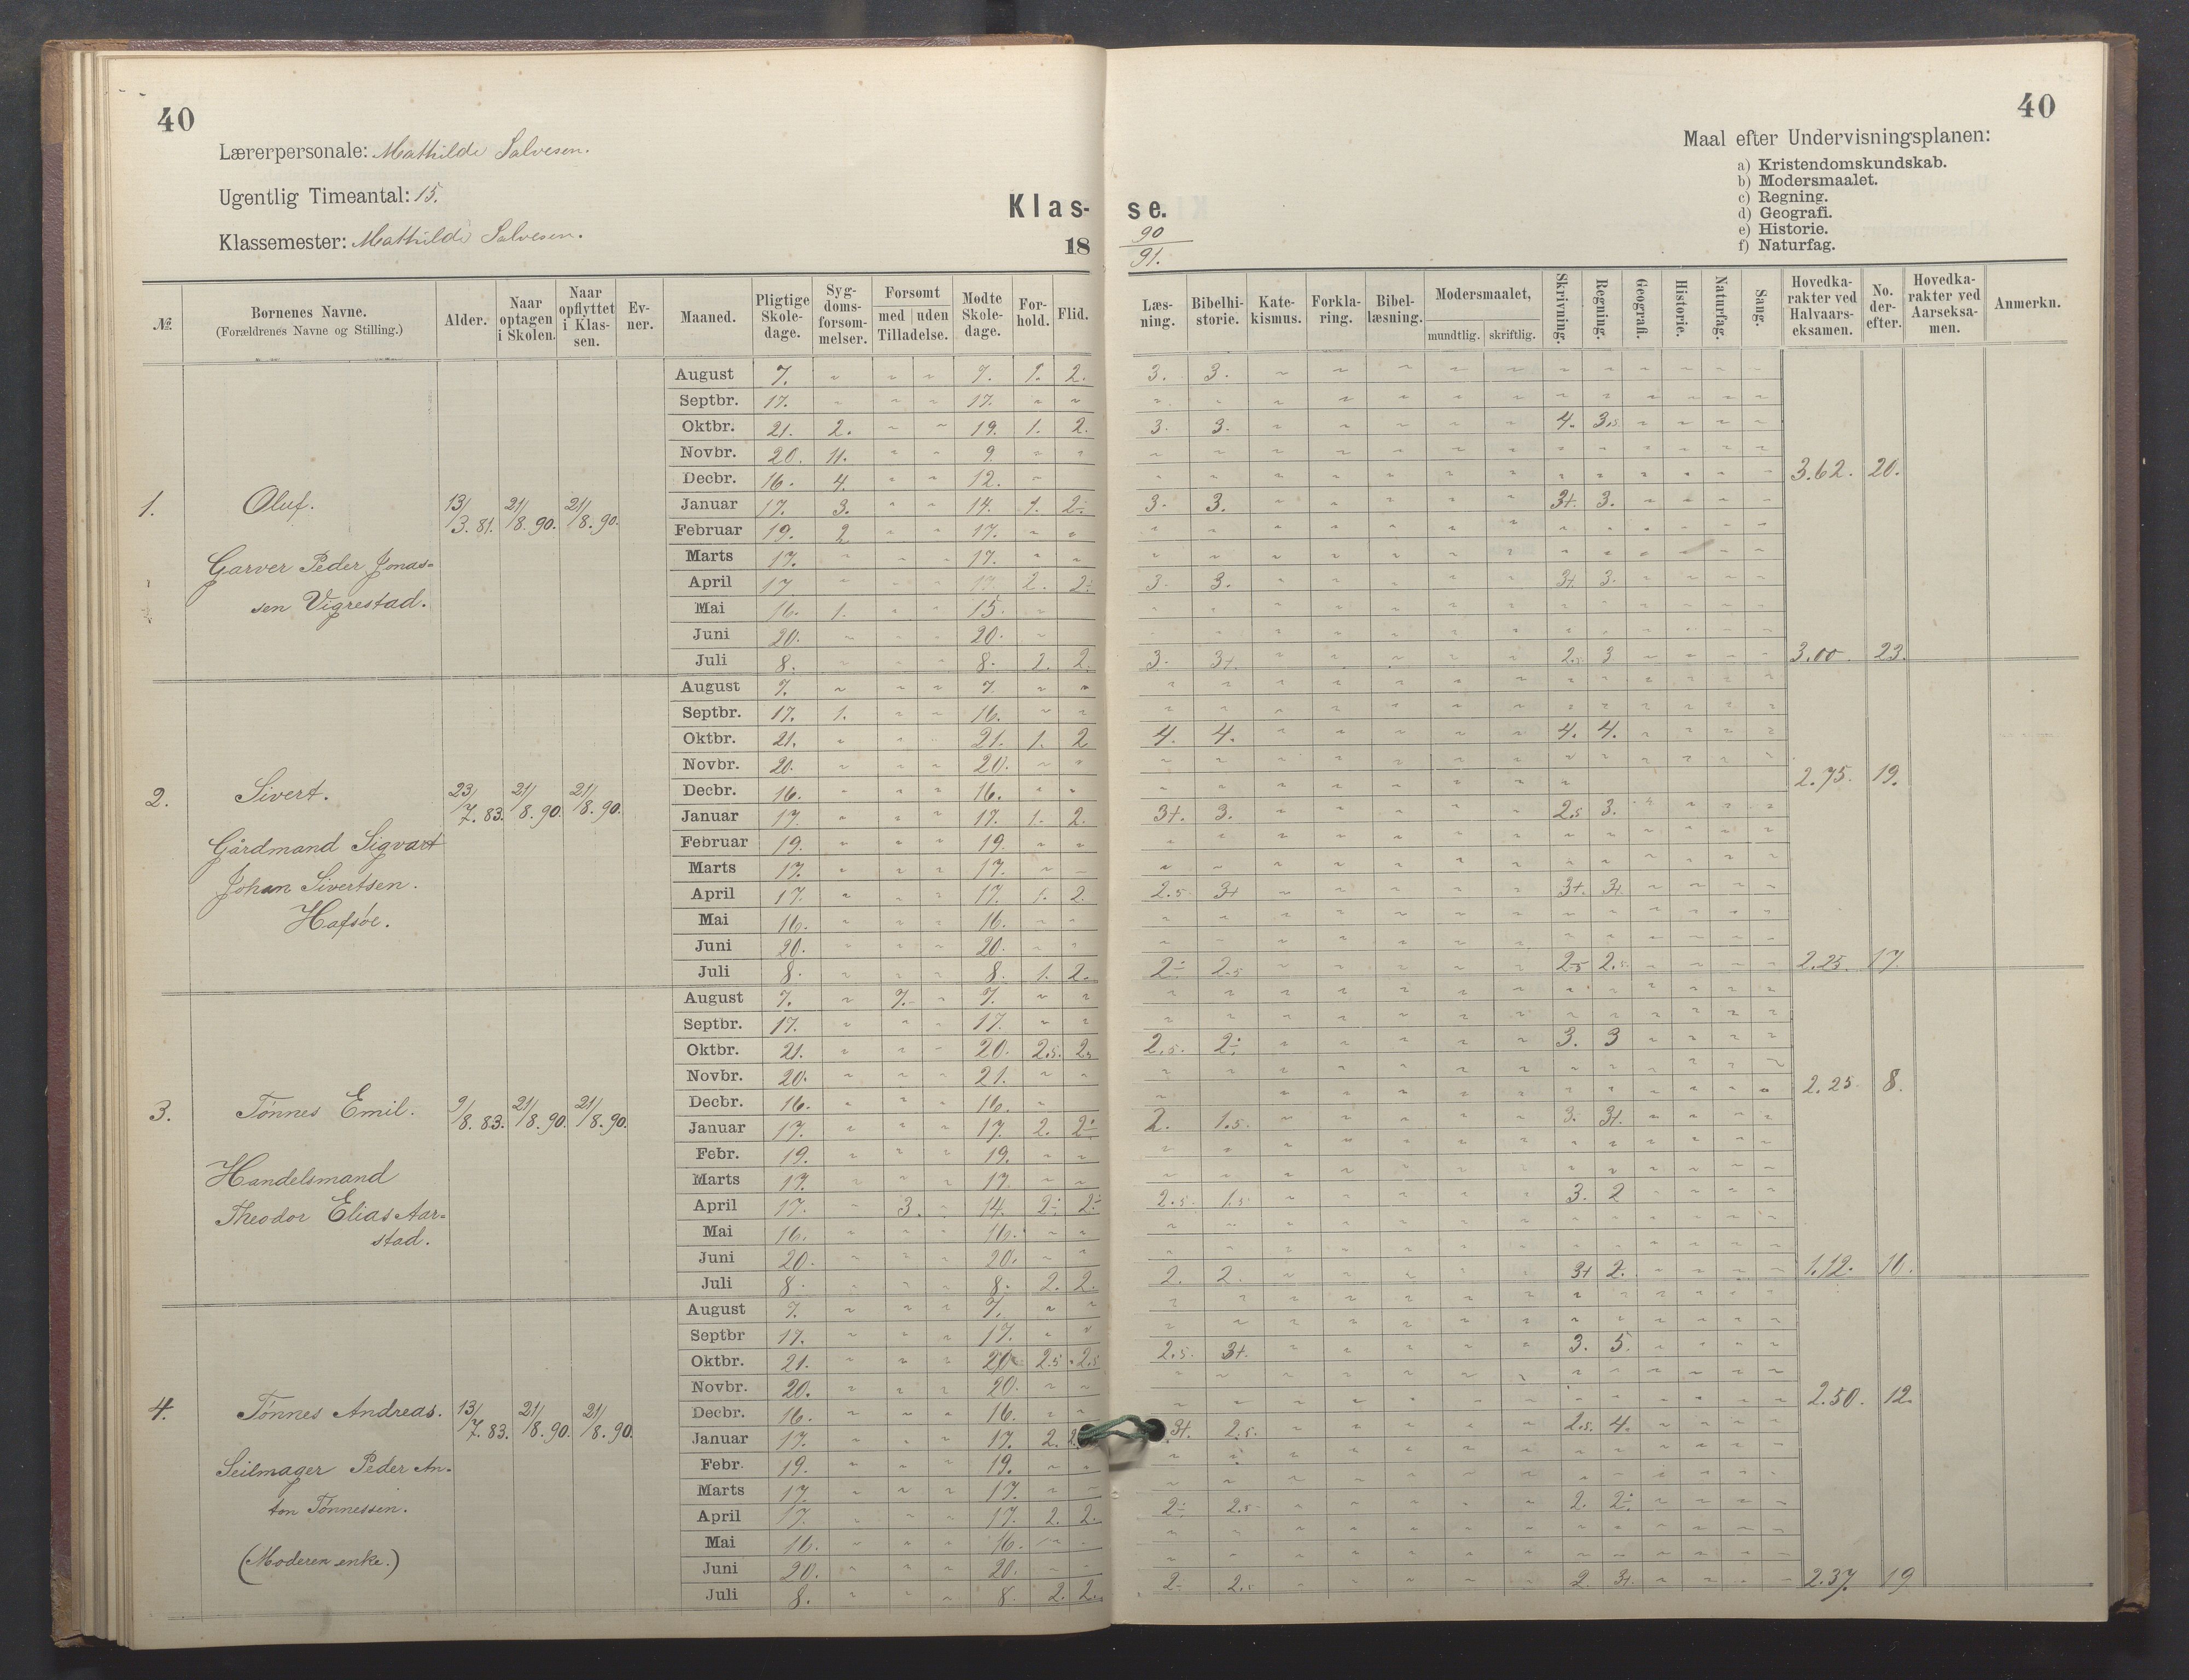 40
Lærerpersonale: Mathilde Salvesen.
Ugentlig Timeantal: 15.
Klassemester: Mathilde Salvesen.
Klas-
18
№
Børnenes Navne.
(Forældrenes Navne og Stilling.)
Alder.
Naar optagen i Skolen.
Naar opflyttet i Klassen.
Evner.
Maaned.
Pligtige Skoledage.
Sygdomsforsømmelser.
Forsømt
med uden
Tilladelse.
Mødte Skoledage.
Forhold.
Flid.
1.
Oluf.
13/3. 81.
21/8. 90.
21/8. 90.
Garver Peder Jonas-
sen Vigrestad.
August 7. 7. 1. 2.
Septbr. 17. 17.
Oktbr. 21. 2. 19. 1. 2.
Novbr. 20. 11. 9.
Decbr. 16. 4. 12.
Januar 17. 3. 14. 1. 2÷
Februar 19. 2 17.
Marts 17. 17.
April 17 17. 2. 2÷
Mai 16. 1. 15.
Juni 20. 20.
Juli 8. 8. 2. 2.
2.
Sivert.
23/7. 83.
21/8. 90.
21/8. 90.
Gårdmand Sigvart
Johan Sivertsen.
Hafsøe.
August 7. 7.
Septbr. 17. 1. 16.
Oktbr. 21. 21. 1. 2
Novbr. 20. 20.
Decbr. 16. 16.
Januar 17. 17. 1. 2.
Februar 19. 19.
Marts 17. 17.
April 17. 17. 1. 2.
Mai 16. 16.
Juni 20. 20.
Juli 8. 8. 1. 2.
3.
Tønnes Emil.
9/8. 83.
21/8. 90.
21/8. 90.
Handelsmand
Theodor Elias Aar-
stad.
August 7. 7. 7.
Septbr. 17. 17.
Oktbr. 21. 20. 2.5. 2.5
Novbr. 20. 21.
Decbr. 16. 16.
Januar 17. 17. 2. 2÷
Febr. 19. 19.
Marts 17. 17.
April 17. 3. 14. 2÷ 2÷
Mai 16. 16.
Juni 20. 20.
Juli 8. 8. 2. 2.
4.
Tønnes Andreas.
13/7. 83.
21/8. 90.
21/8. 90.
Seilmager Peder An-
ton Tønnessen.
(Moderen enke.)
August 7. 7.
Septbr 17. 17.
Oktbr. 21. 20 2.5. 2.5
Novbr. 20. 20.
Decbr. 16. 16.
Januar 17. 17. 2.
Febr. 19. 19.
Marts 17. 17.
April 17. 17. 2. 2.
Mai 16. 16.
Juni 20. 20.
Juli 8. 8. 2. 2.
40
Maal efter Undervisningsplanen:
a) Kristendomskundskab.
b) Modersmaalet.
c) Regning.
d) Geografi.
e) Historie.
f) Naturfag.
se.
90
91.
Læsning.
Bibelhistorie.
Katekismus.
Forklaring.
Bibellæsning.
Modersmaalet,
mundtlig. skriftlig.
Skrivning.
Regning.
Geografi.
Historie.
Naturfag.
Sang.
Hovedkarakter ved Halvaarseksamen.
No. derefter.
Hovedkarakter ved Aarseksamen.
Anmerkn.
3. 3.
3. 3. 4. 3.5
3.62. 20.
3. 3. 3+. 3.
3. 3. 3+ 3.
3. 3+. 2.5 3 3.00. 23.
4. 4. 4. 4.
2.75. 19.
3+. 3. 2.5 3.
2.5. 3+ 3+. 3+
2÷ 2.5 2.5 2.5 2.25. 17.
2.5. 2÷ 3. 3
2.25 8.
2. 1.5. 3. 3+.
2.5. 1.5 3. 2
2. 2 3+ 2. 1.12. 16.
2.5. 3+. 3. 5.
2.50. 12.
3+. 2.5. 2.5. 4.
2÷ 2.5 2. 2÷
2. 2.5 2. 3+. 2.37. 19